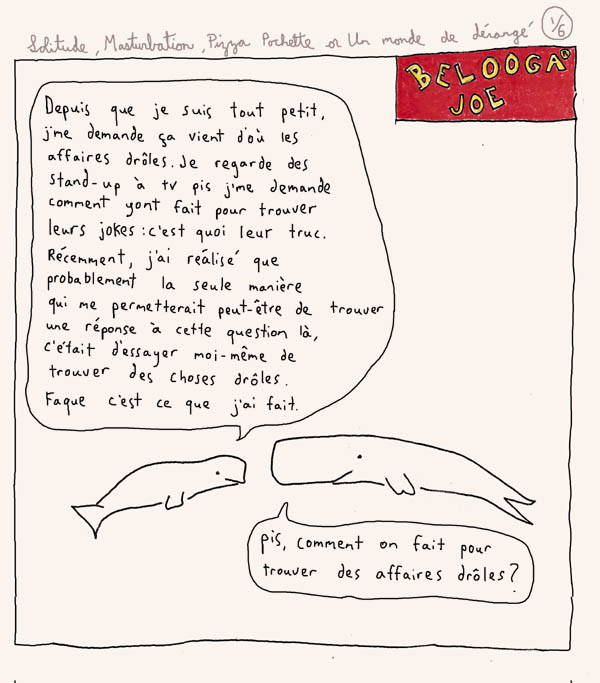 Solitude, Masturbation, Pizza Pochette or Un monde de dérangé 1/6
BELOOGA
JOE
Depuis que je suis tout petit,
j'me demande ça vient d'où les
affaires drôles. Je regarde des
stand-up à tv pis j'me demande
comment yont fait pour trouver
leurs jokes : c'est quoi leur truc.
Récemment, j'ai réalisé que
probablement la seule manière
qui me permetterait peut-être de trouver
une réponse à cette question là,
c'était d'essayer moi-même de
trouver des choses drôles.
Faque c'est ce que j'ai fait.
pis, comment on fait pour
trouver des affaires drôles?